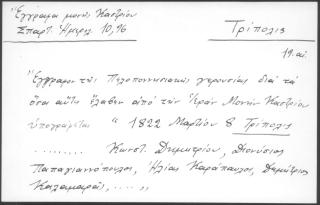 Ἔγγραφα μονῆς Καστρίου
Σπαρτ. Ἡμερολ. 10, 96
Τρίπολις
19. αἰ.
Ἔγγραφον τῆς Πελοποννησιακῆς γερουσίας διὰ τὰ
ὅσα αὕτη ἔλαβεν ἀπὸ τὴν Ἱερὰν Μονὴν Καστρίου
ὑπογράφεται " 1822 Μαρτίου 8 Τρίπολις
.......... Κωνστ. Δημητρίου, Διονύσιος
Παπαγιαννόπουλος, Ἠλίας Καράπαυλος, Δημήτριος
Καλαμαρᾶς, .....,,